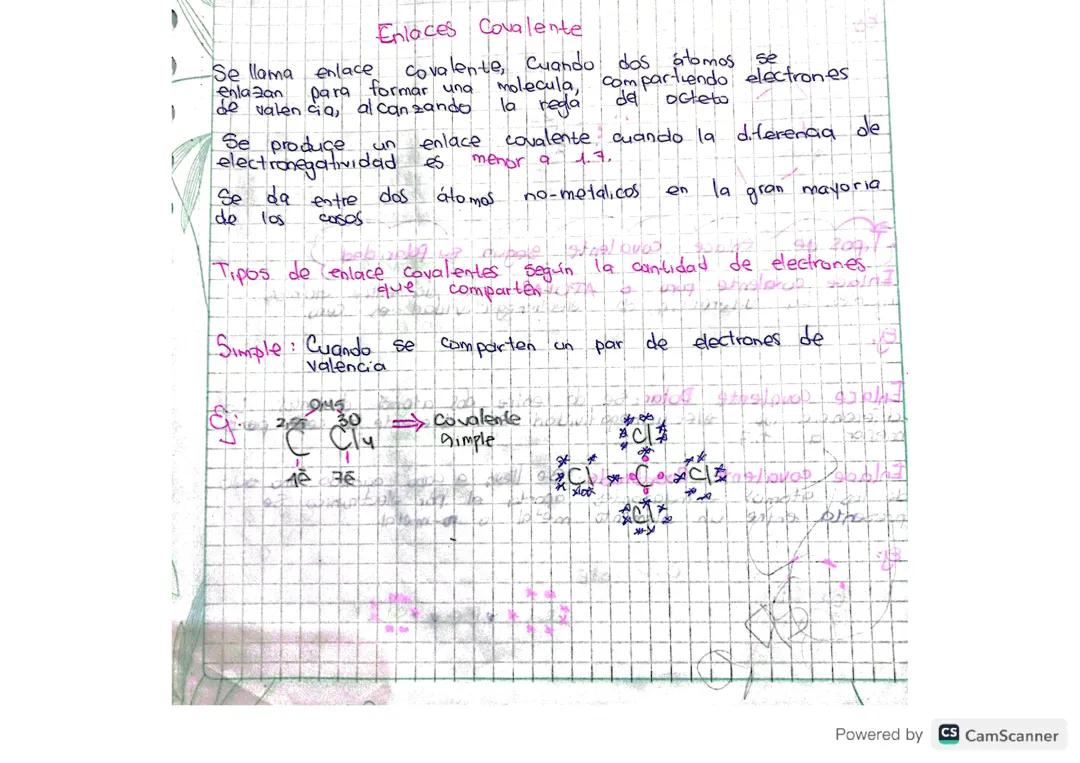 Enlaces Covalente
Se llama enlace covalente, Cuando dos átomos se
enlazan para formar una molecula, compartiendo electrones
de valencia, alcanzando la regla del octeto
Se produce un enlace covalente cuando la diferencia de
electronegatividad es menor a 1.7.
Se da entre dos átomos no-metalicos en la gran mayoria
de los casos
Tipos de enlace covalentes según la cantidad de electrones
que comparten
Simple: Cuando se comparten un par de electrones de
valencia
Ej:
0,45
30
C Cl4 ⇒ Covalente
Simple
7ē
Cl
Cl C Cl
Cl
Powered by CS CamScanner